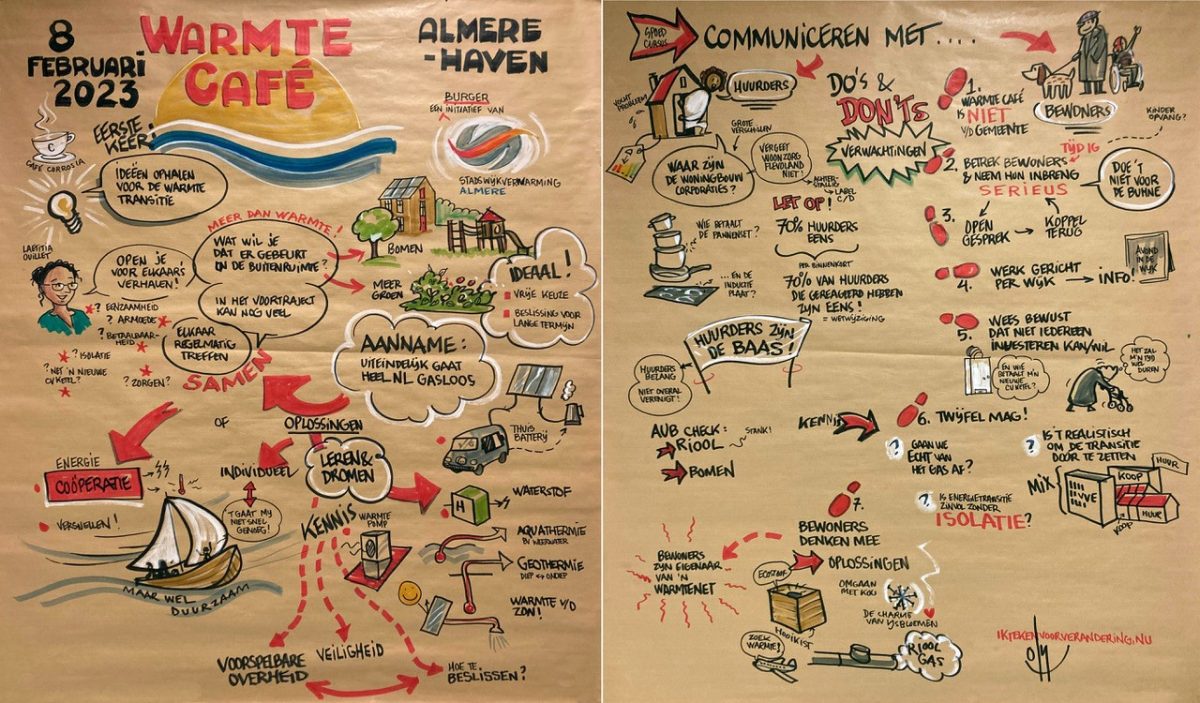 8
FEBRUARI
2023
WARMTE
CAFÉ
ALMERE
-HAVEN
BURGER
EEN INITIATIEF VAN
STADSWIJKVERWARMING
ALMERE
CAFÉ CORROSIA
EERSTE
KEER:
IDEËEN OPHALEN
VOOR DE WARMTE
TRANSITIE
LAETITIA
OUILLET
OPEN JE
VOOR ELKAARS
VERHALEN!
? EENZAAMHEID
? ARMOEDE
? BETAALBAAR-
HEID
? ISOLATIE
? NET 'N NIEUWE
CV KETEL?
? ZORGEN?
MEER DAN WARMTE!
WAT WIL JE
DAT ER GEBEURT
IN DE BUITENRUIMTE?
IN HET VOORTRAJECT
KAN NOG VEEL
ELKAAR
REGELMATIG
TREFFEN
SAMEN
BOMEN
MEER
GROEN
IDEAAL!
VRIJE KEUZE
BESLISSING VOOR
LANGE TERMIJN
AANNAME:
UITEINDELIJK GAAT
HEEL NL GASLOOS
OF
OPLOSSINGEN
THUIS
BATTERIJ
ENERGIE
COÖPERATIE
VERSNELLEN!
INDIVIDUEEL
'T GAAT MIJ
NIET SNEL
GENOEG!
MAAR WEL
DUURZAAM
LEREN &
DROMEN
KENNIS
WARMTE
POMP
H
WATERSTOF
AQUATHERMIE
BV WEERWATER
GEOTHERMIE
DIEP <-> ONDIEP
WARMTE V/D
ZON!
VOORSPELBARE
OVERHEID
VEILIGHEID
HOE TE
BESLISSEN?
SPOED
CURSUS
COMMUNICEREN MET....
VOCHT
PROBLEEM!
HUURDERS
DO'S &
DON'TS
VERWACHTINGEN
GROTE
VERSCHILLEN
WAAR ZIJN
DE WONINGBOUW
CORPORATIES?
VERGEET
WOONZORG
FLEVOLAND
NIET!
ACHTER-
STALLIG
LABEL
C/D
LET OP!
70% HUURDERS
EENS
PER BINNENKORT
70% VAN HUURDERS
DIE GEREAGEERD HEBBEN
ZIJN EENS!
= WETWIJZIGING
WIE BETAALT
DE PANNENSET?
... EN DE
INDUCTIE
PLAAT?
HUURDERS ZIJN
DE BAAS!
HUURDERS
BELANG
NIET OVERAL
VERENIGT!
AUB CHECK:
RIOOL
STANK!
BOMEN
1.
WARMTE CAFÉ
IS NIET
V/D GEMEENTE
BEWONERS
KINDER
OPVANG?
TIJD IG
2. BETREK BEWONERS
& NEEM HUN INBRENG
SERIEUS
DOE 'T
NIET VOOR
DE BÜHNE
3.
OPEN
GESPREK
KOPPEL
TERUG
4. WERK GERICHT
PER WIJK
INFO!
AVOND
IN DE
WIJK
5. WEES BEWUST
DAT NIET IEDEREEN
INVESTEREN KAN/WIL
EN WIE
BETAALT M'N
NIEUWE
CV KETEL?
HET ZAL
M'N TIJD
WEL
DUREN
KENNIS
6. TWIJFEL MAG!
? GAAN WE
ECHT VAN
HET GAS AF?
? IS 'T REALISTISCH
OM DE TRANSITIE
DOOR TE ZETTEN
? IS ENERGIETRANSITIE
ZINVOL ZONDER
ISOLATIE?
MIX
VVE
KOOP
HUUR
KOOP
HUUR
7.
BEWONERS
DENKEN MEE
OPLOSSINGEN
BEWONERS
ZIJN EIGENAAR
VAN 'N
WARMTENET
ECOSTOOF
HOOIKIST
OMGAAN
MET KOU
DE CHARME
VAN IJSBLOEMEN
ZOEK
WARMTE!
RIOOL
GAS
IKTEKENVOORVERANDERING.NU